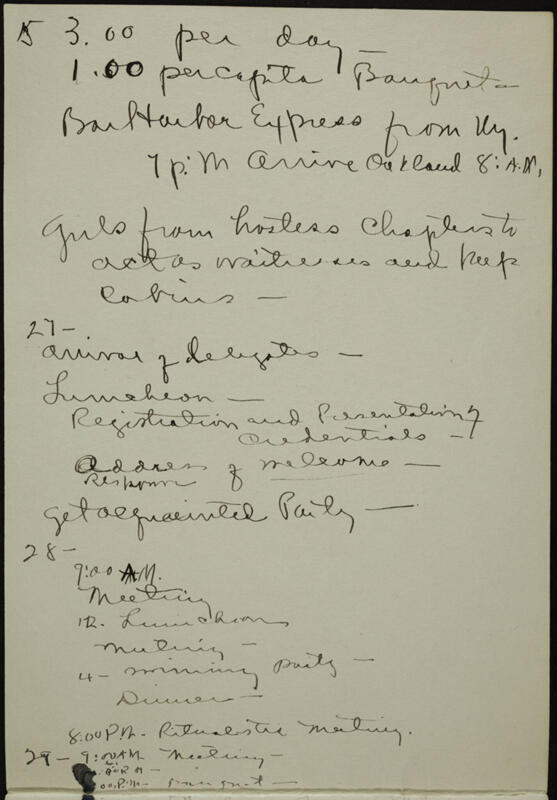 $ 3.00 per day —
1.00 per capita Banquet —
Bar Harbor Express from Ny.
7 p.M Arrive Oakland 8: A.M,
Girls from hostess Chapters to
act as waitresses and keep
Cabins —
27 —
Arrival of delegates —
Luncheon —
Registration and Presentation of
Credentials —
Address of welcome —
Response
Get acquainted Party —
28 —
9:00 A.M.
Meeting
12. Luncheon
Meeting —
4 - swimming party —
Dinner —
8:00 P.M. - Ritualistic Meeting.
29 - 9:00 AM Meeting —
00 P.M - Banquet —